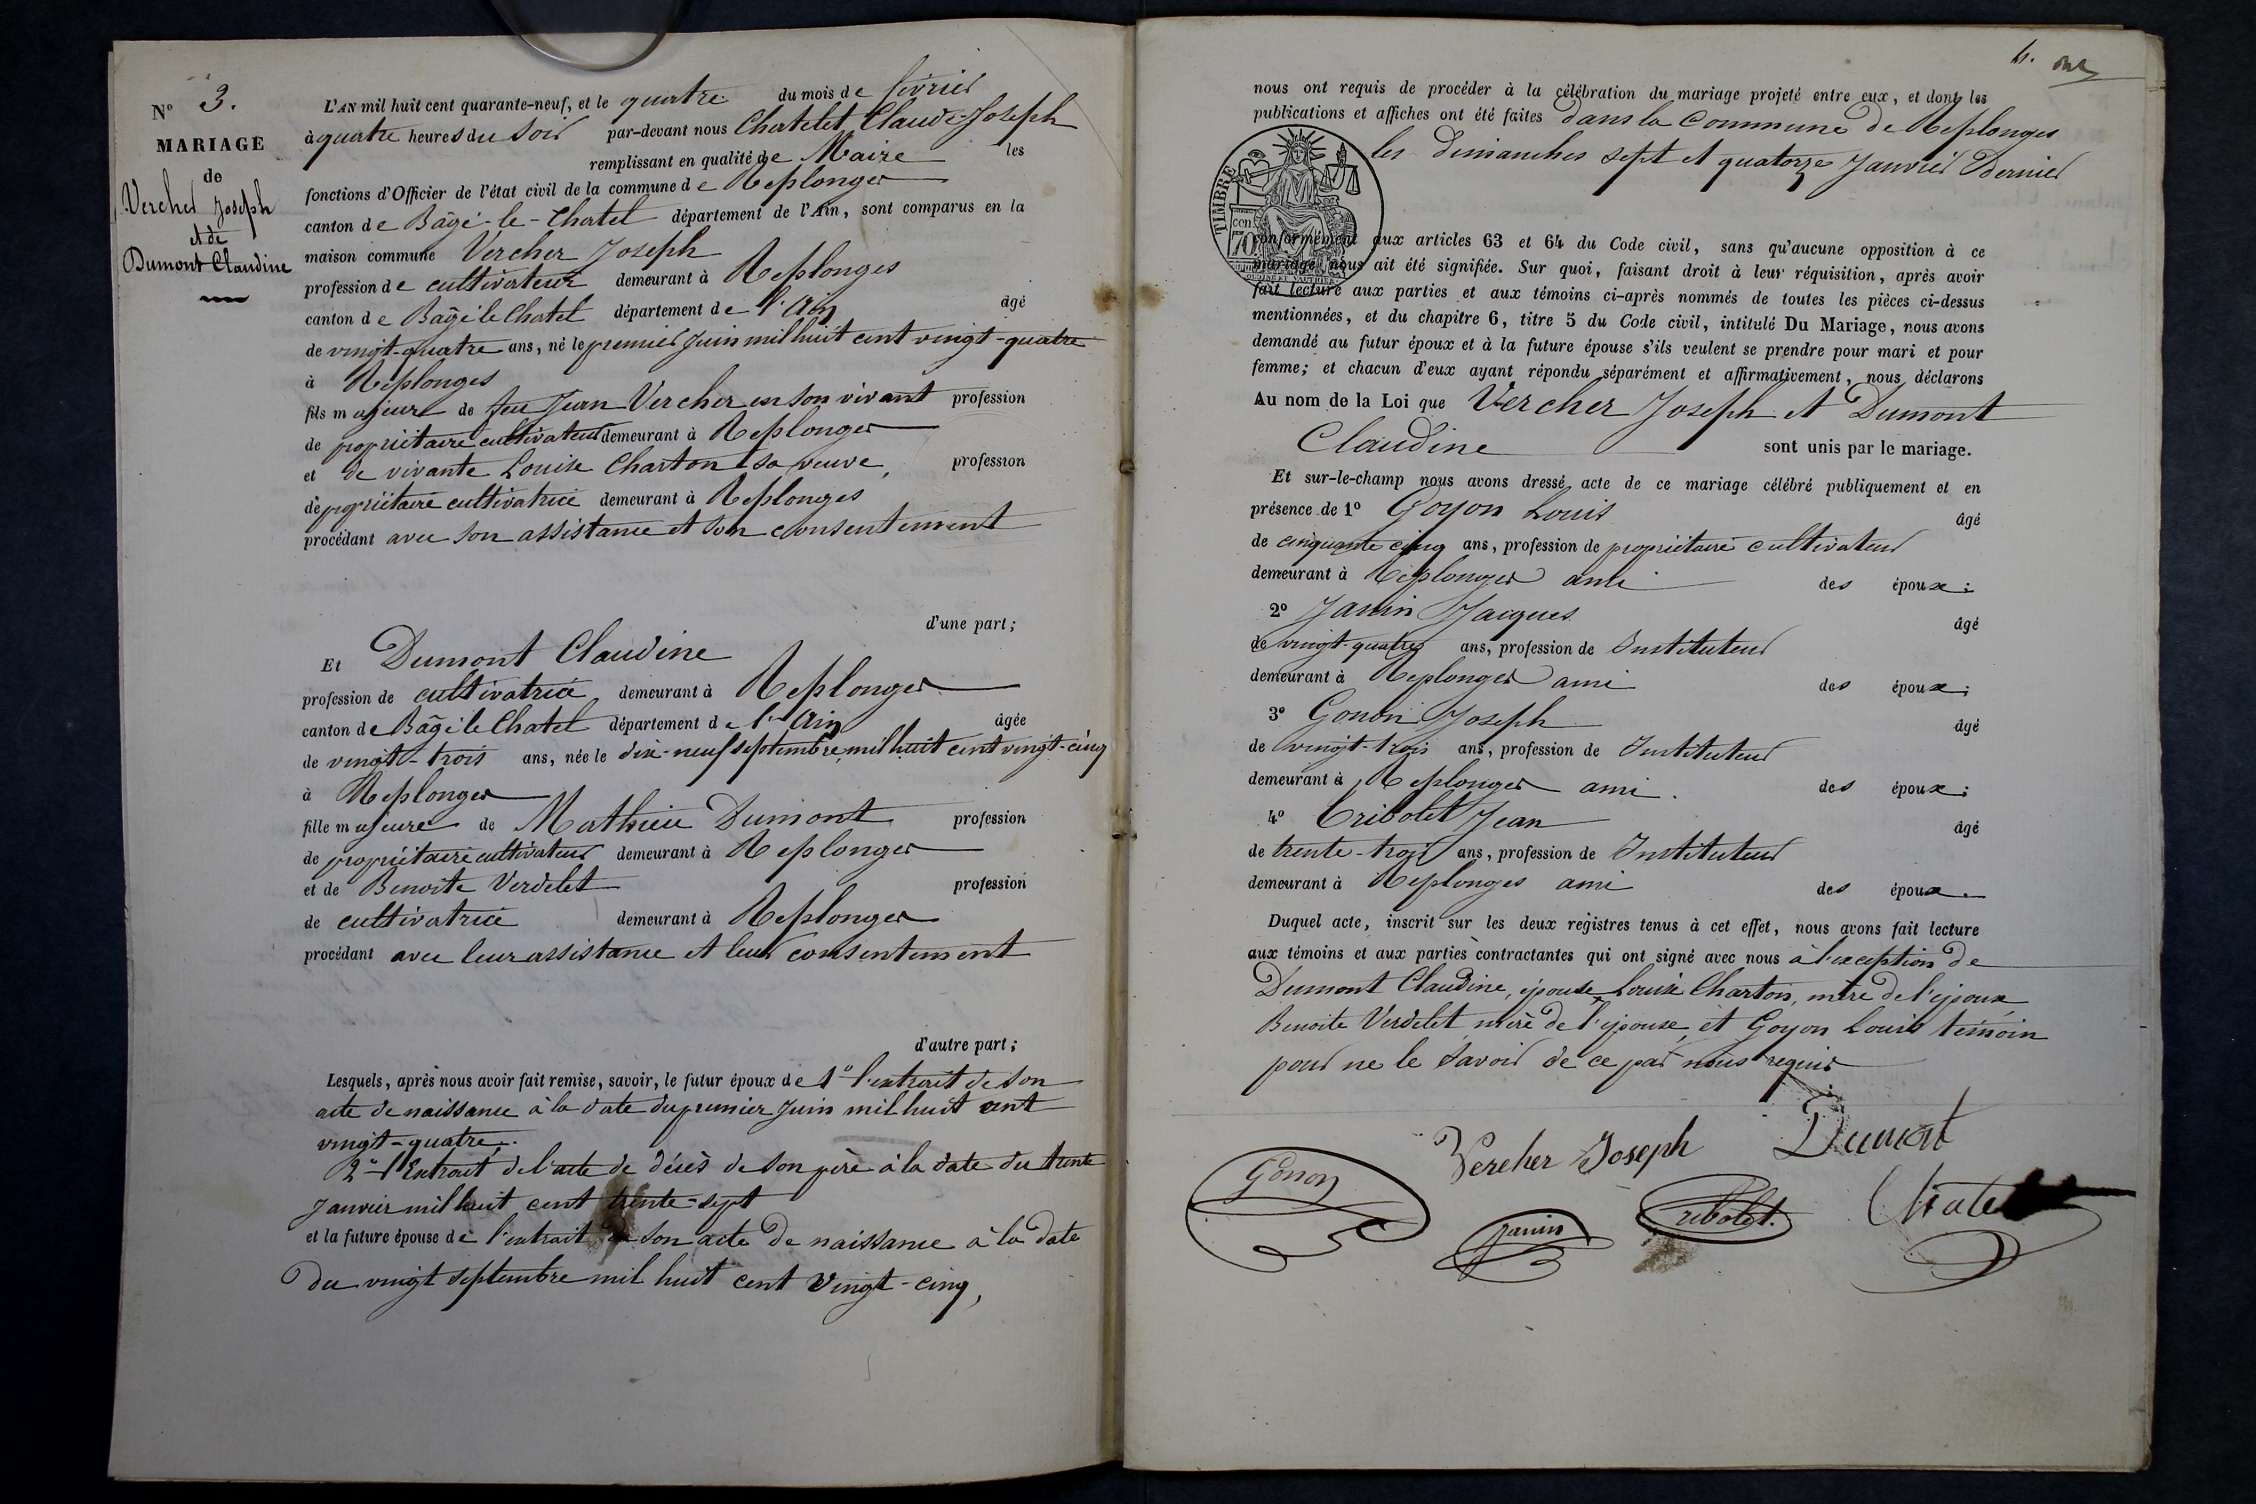 N° 3.
MARIAGE
de
Vercher Joseph
et de
Dumont Claudine
L'AN mil huit cent quarante-neuf, et le quatre du mois de février
à quatre heures du soir par-devant nous Chatelet Claude-Joseph
remplissant en qualité de Maire les
fonctions d'Officier de l'état civil de la commune de Replonges
canton de Bâgé-le-Chatel département de l'Ain, sont comparus en la
maison commune Vercher Joseph
profession de cultivateur demeurant à Replonges
canton de Bâgé le Chatel département de l'Ain âgé
de vingt-quatre ans, né le premier Juin mil huit cent vingt-quatre
à Replonges
fils majeure de feu Jean Vercher en son vivant profession
de propriétaire cultivateur demeurant à Replonges
et de vivante Louise Charton sa veuve, profession
de propriétaire cultivatrice demeurant à Replonges
procédant avec son assistance et son consentement
d'une part;
Et Dumont Claudine
profession de cultivatrice demeurant à Replonges
canton de Bâgé le Chatel département de l'Ain âgée
de vingt-trois ans, née le dix-neuf septembre mil huit cent vingt-cinq
à Replonges
fille majeure de Mathieu Dumont profession
de propriétaire cultivateur demeurant à Replonges
et de Benoite Verdelet profession
de cultivatrice demeurant à Replonges
procédant avec leur assistance et leur consentement
d'autre part;
Lesquels, après nous avoir fait remise, savoir, le futur époux de 1° l'extrait de son
acte de naissance à la date du premier Juin mil huit cent
vingt-quatre.
2° l'Extrait de l'acte de décès de son père à la date du trente
Janvier mil huit cent trente-sept
et la future épouse de l'extrait de son acte de naissance à la date
du vingt septembre mil huit cent vingt-cinq,
nous ont requis de procéder à la célébration du mariage projeté entre eux, et dont les
publications et affiches ont été faites dans la Commune de Replonges
les dimanches sept et quatorze Janvier Dernier
TIMBRE
70 cen.
conformément aux articles 63 et 64 du Code civil, sans qu'aucune opposition à ce
mariage nous ait été signifiée. Sur quoi, faisant droit à leur réquisition, après avoir
fait lecture aux parties et aux témoins ci-après nommés de toutes les pièces ci-dessus
mentionnées, et du chapitre 6, titre 5 du Code civil, intitulé Du Mariage, nous avons
demandé au futur époux et à la future épouse s'ils veulent se prendre pour mari et pour
femme; et chacun d'eux ayant répondu séparément et affirmativement, nous déclarons
Au nom de la Loi que Vercher Joseph et Dumont
Claudine sont unis par le mariage.
Et sur-le-champ nous avons dressé acte de ce mariage célébré publiquement et en
présence de 1° Goyon Louis âgé
de cinquante cinq ans, profession de propriétaire cultivateur
demeurant à Replonges ami des époux;
2° Janin Jacques âgé
de vingt-quatre ans, profession de Instituteur
demeurant à Replonges ami des époux;
3° Gonon Joseph âgé
de vingt-trois ans, profession de Instituteur
demeurant à Replonges ami. des époux;
4° Tribolet Jean âgé
de trente-trois ans, profession de Instituteur
demeurant à Replonges ami des époux.
Duquel acte, inscrit sur les deux registres tenus à cet effet, nous avons fait lecture
aux témoins et aux parties contractantes qui ont signé avec nous à l'exception de
Dumont Claudine, épouse, Louise Charton, mère de l'époux
Benoite Verdelet mère de l'épouse, et Goyon Louis témoin
pour ne le savoir de ce par nous requis
Vercher Joseph Dumont
Gonon Janin Tribolet.